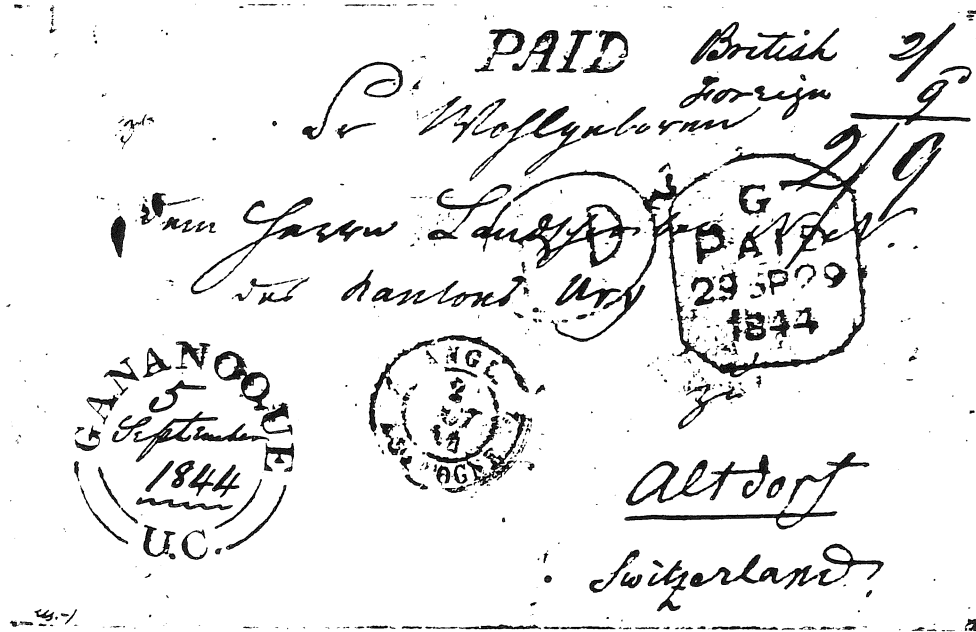 PAID British 2/
Foreign 9
2/9
Sr Wohlgeboren
dem Herrn
des Kantons Ury
PD
G
PAID
29 SP 29
1844
GANANOQUE
5
September
1844
U.C.
ANGL.
2
OGNE
zu
Altdorf
Switzerland